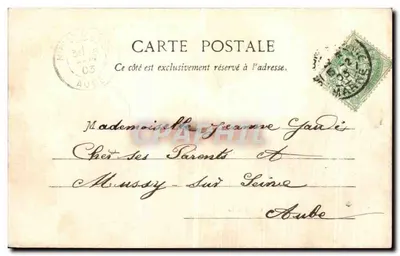 CARTE POSTALE
Ce côté est exclusivement réservé à l'adresse.
Mademoiselle Jeanne
Chez ses Parents A
Mussy-sur Seine
Aube
03
AUBE
MARNE